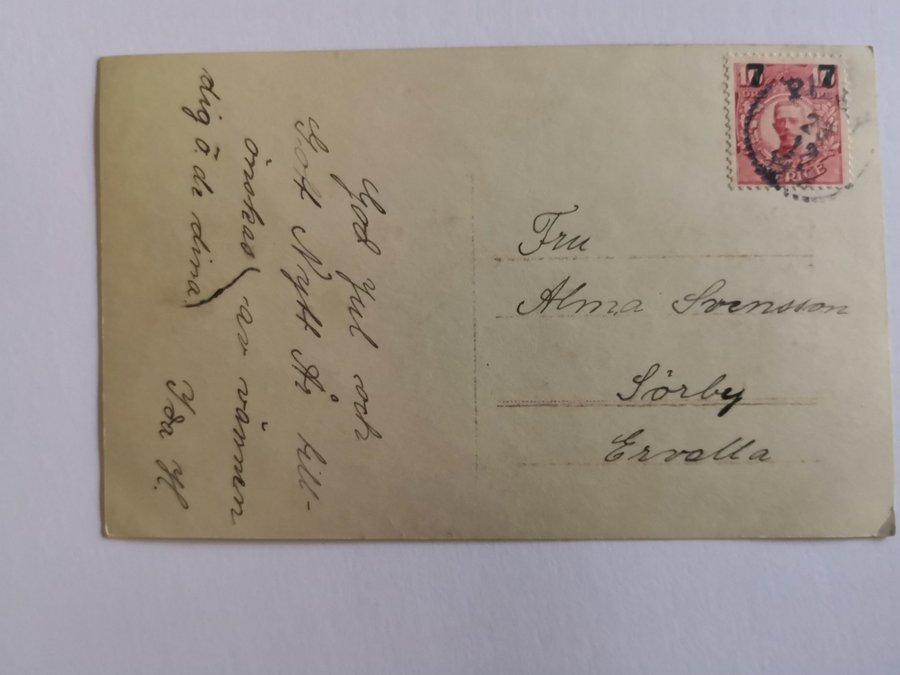 God Jul och
Gott Nytt År till-
önskas av vännen
dig o de dina
Ida H.
7 7
RICE
Fru
Alma Svensson
Sörby
Ervalla